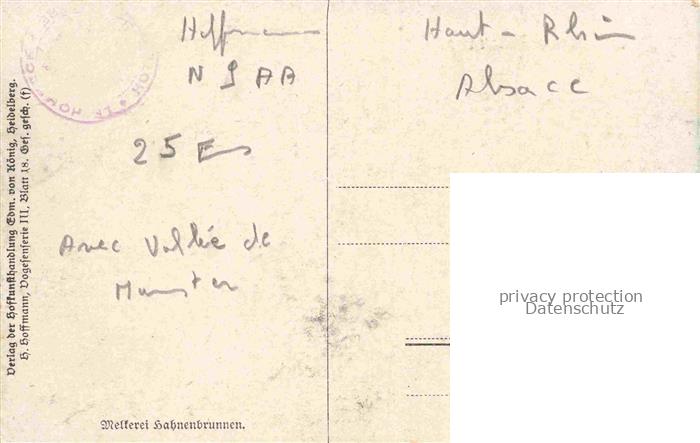 Hoffmann
N 9 AA
25 Es
Avec Vallée de
Munster
Haut-Rhin
Alsace
Verlag der Hofkunsthandlung Edm. von König, Heidelberg.
H. Hoffmann, Vogesenserie III, Blatt 18. Ges. gesch. (f)
Melkerei Hahnenbrunnen.
privacy protection
Datenschutz